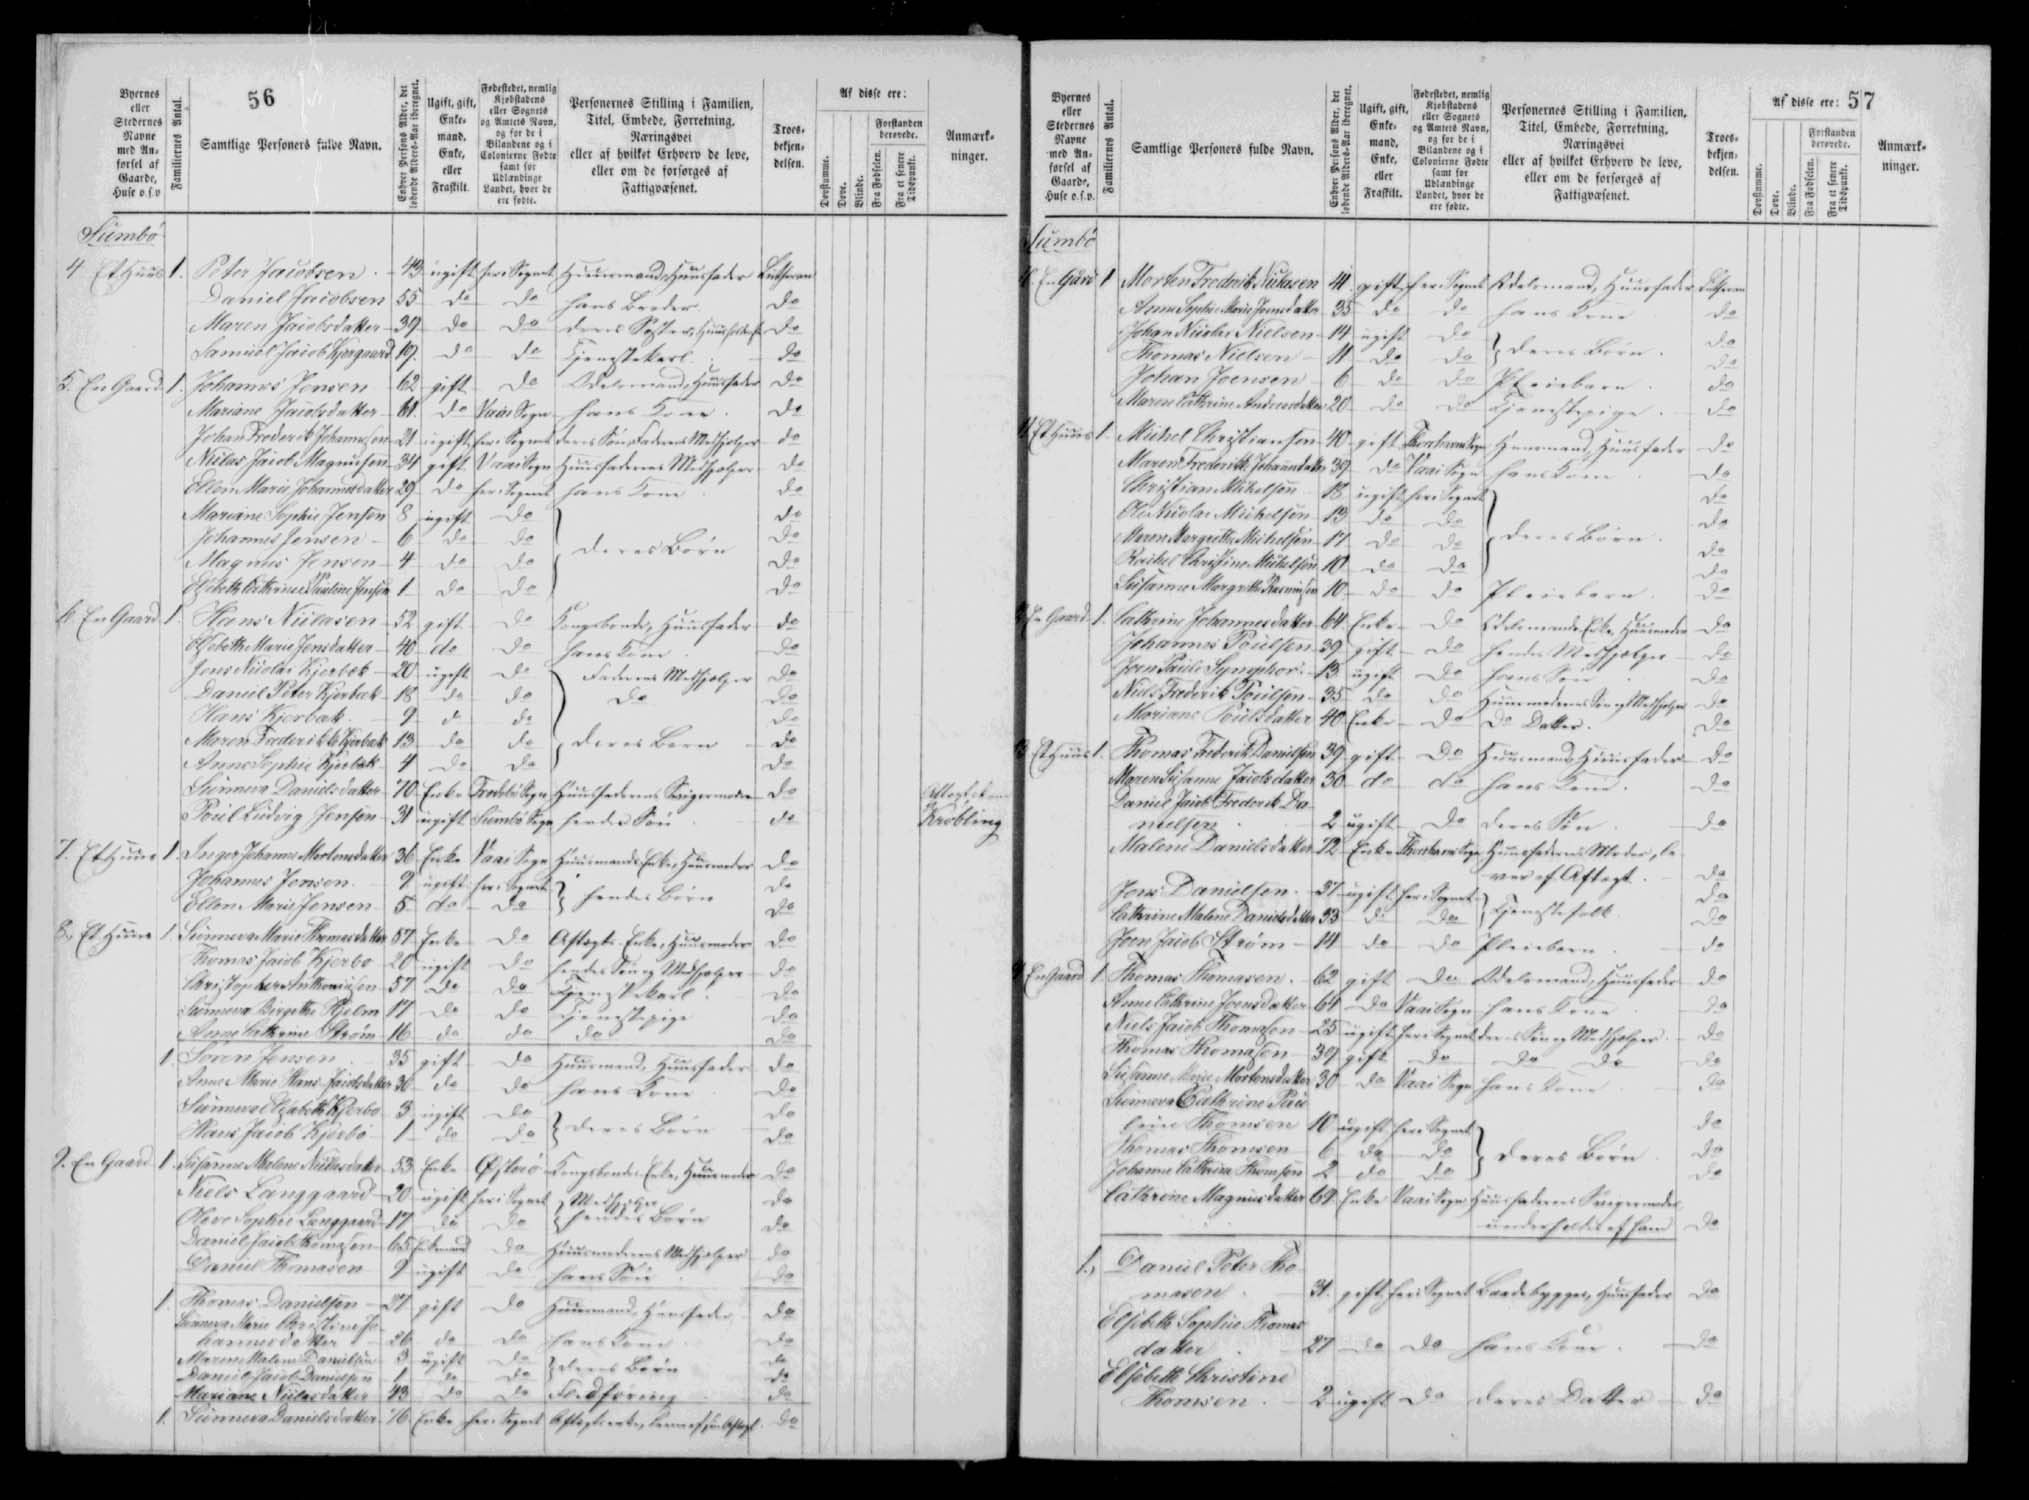 56
Byernes eller Stedernes Navne med Anførsel af Gaarde, Huse o.s.v.
Familiernes Antal.
Samtlige Personers fulde Navn.
Enhver Persons Alder, det løbende Alders-Aar iberegnet.
Ugift, gift, Enkemand, Enke, eller Fraskilt.
Fødestedet, nemlig Kjøbstadens eller Sognets og Amtets Navn, og for de i Bilandene og i Colonierne Fødte samt for Udlændinge Landet, hvor de ere fødte.
Personernes Stilling i Familien, Titel, Embede, Forretning, Næringsvei eller af hvilket Erhverv de leve, eller om de forsørges af Fattigvæsenet.
Troesbekjendelsen.
Af disse ere:
Døvstumme.
Døve.
Blinde.
Forstanden berøvede.
Fra Fødselen.
Fra et senere Tidspunkt.
Anmærkninger.
Sumbø
4 Et Huus 1. Peter Jacobsen 43 ugift her i Sognet Huusmand, Huusfader Lutheran
Daniel Jacobsen 55 do do hans Broder do
Maren Jacobsdatter 39 do do deres Søster, do
Samuel Jacob Kjergaard 19 do do Tjenestekarl do
5. En Gaard 1. Johannes Jensen 62 gift do Odelsmand, Huusfader do
Mariane Jacobsdatter 61 do Vaai Sogn hans Kone do
Johan Frederik Johannesen 21 ugift her i Sognet deres Søn, Faderens Medhjelper do
Niclas Jacob Magnussen 34 gift Vaai Sogn Huusfaderens Medhjelper do
Ellen Marie Johannesdatter 29 do her i Sognet hans Kone do
Mariane Sophie Jensen 8 ugift do do
Johannes Jensen 6 do do deres Børn do
Magnus Jensen 4 do do do
Elsebeth Cathrine Pauline Jensen 1 do do do
6. En Gaard 1. Hans Niclasen 52 gift do Kongsbonde, Huusfader do
Elsebeth Marie Jensdatter 40 do do hans Kone do
Jens Nicolai Kjerbæk 20 ugift do Faderens Medhjelper do
Daniel Peter Kjerbæk 18 do do do do
Hans Kjerbæk 9 do do do
Maren Frederikke Kjerbæk 13 do do deres Børn do
Anne Sophie Kjerbæk 4 do do do
Sunneva Danielsdatter 70 Enke Frodebø Sogn Huusfaderens Svigermoder do
Poul Ludvig Jensen 31 ugift Sumbø Sogn hendes Søn do Krøbling
7. Et Huus 1. Inger Johanne Mortensdatter 36 Enke Vaai Sogn Huusmands Enke, Huusmoder do
Johannes Jensen 9 ugift her i Sognet hendes Børn do
Ellen Marie Jensen 5 do do do
8. Et Huus 1. Sunneva Marie Thomasdatter 57 Enke do Aftægts Enke, Huusmoder do
Thomas Jacob Kjerbo 20 ugift do hendes Søn og Medhjelper do
Christopher Anthoniusen 57 do do Tjenestekarl do
Sunneva Birgethe Hjelm 17 do do Tjenestepige do
Anne Cathrine Strøm 16 do do do do
1. Søren Jensen 35 gift do Huusmand, Huusfader do
Anne Marie Hans Jacobsdatter 30 do do hans Kone do
Sunneva Elsebeth Kjerbo 3 ugift do deres Børn do
Hans Jacob Kjerbo 1 do do do
9. En Gaard 1. Susanne Malene Niclasdatter 53 Enke Østerø Kongsbondes Enke, Huusmoder do
Niels Langgaard 20 ugift her i Sognet Medhjelper do
Oleve Sophie Langgaard 17 do do hendes Børn do
Daniel Jacob Thomasen 65 Enkemand do Huusmoderens Medhjelper do
Daniel Thomasen 9 ugift do hans Søn do
1. Thomas Danielsen 27 gift do Huusmand, Huusfader do
Sunneva Marie Christine Johannesdatter 26 do do hans Kone do
Maren Malene Danielsen 3 ugift do deres Børn do
Daniel Jacob Danielsen 1 do do do
Mariane Niclasdatter 43 do do do
1. Sunneva Danielsdatter 76 Enke her i Sognet Aftægtsenke, do
57
Byernes eller Stedernes Navne med Anførsel af Gaarde, Huse o.s.v.
Familiernes Antal.
Samtlige Personers fulde Navn.
Enhver Persons Alder, det løbende Alders-Aar iberegnet.
Ugift, gift, Enkemand, Enke, eller Fraskilt.
Fødestedet, nemlig Kjøbstadens eller Sognets og Amtets Navn, og for de i Bilandene og i Colonierne Fødte samt for Udlændinge Landet, hvor de ere fødte.
Personernes Stilling i Familien, Titel, Embede, Forretning, Næringsvei eller af hvilket Erhverv de leve, eller om de forsørges af Fattigvæsenet.
Troesbekjendelsen.
Af disse ere:
Døvstumme.
Døve.
Blinde.
Forstanden berøvede.
Fra Fødselen.
Fra et senere Tidspunkt.
Anmærkninger.
Sumbø
En Gard 1 Morten Frederik Niclasen 41 gift her i Sognet Odelsmand, Huusfader Lutheran
Anne Sophie Marie Joensdatter 35 do do hans Kone do
Johan Nicolai Nielsen 14 ugift do deres Børn do
Thomas Nielsen 11 do do do
Johan Joensen 6 do do Pleiebarn do
Maren Cathrine Andreasdatter 20 do do Tjenestepige do
Et Huus 1. Michel Christiansen 40 gift Thorshavn Sogn Huusmand, Huusfader do
Maren Frederikke Johannesdatter 39 do Vaai Sogn hans Kone do
Christian Michelsen 18 ugift her i Sognet do
Ole Nicolai Michelsen 13 do do do
Maren Margrethe Michelsen 17 do do deres Børn do
Rachel Christine Michelsen 10 do do do
Susanne Margrethe Rasmussen 10 do do Pleiebarn do
En Gaard 1. Cathrine Johannesdatter 64 Enke do Odelsmands Enke, Huusmoder do
Johannes Poulsen 39 gift do hendes Medhjelper do
Joen Paule Symphor 13 ugift do hans Søn do
Niels Frederik Poulsen 35 do do Huusmoderens Søn og Medhjelper do
Mariane Poulsdatter 40 Enke do do Datter do
Et Huus 1. Thomas Frederik Danielsen 39 gift do Huusmand, Huusfader do
Maren Susanne Jacobsdatter 30 do do hans Kone do
Daniel Jacob Frederik Danielsen 2 ugift do deres Søn do
Malene Danielsdatter 72 Enke Thorshavn Sogn Huusfaderens Moder, lever af Aftægt do
Jens Danielsen 37 ugift her i Sognet Tjenestefolk do
Cathrine Malene Danielsdatter 33 do do do
Joen Jacob Strøm 14 do do Pleiebarn do
En Gaard 1 Thomas Thomasen 62 gift do Odelsmand, Huusfader do
Anne Cathrine Joensdatter 64 do Vaai Sogn hans Kone do
Niels Jacob Thomasen 25 ugift her i Sognet deres Søn og Medhjelper do
Thomas Thomasen 39 gift do do do do
Susanne Marie Mortensdatter 30 do Vaai Sogn hans Kone do
Sunneva Cathrine Pauline Thomsen 10 ugift her i Sognet do
Thomas Thomsen 6 do do deres Børn do
Johanne Cathrine Thomsen 2 do do do
Cathrine Magnusdatter 69 Enke Vaai Sogn Huusfaderens Svigermoder underholdes af ham do
1. Daniel Peter Thomasen 31 gift her i Sognet Baadebygger, Huusfader do
Elsebeth Sophie Thomasdatter 27 do do hans Kone do
Elsebeth Christine Thomsen 2 ugift do deres Datter do